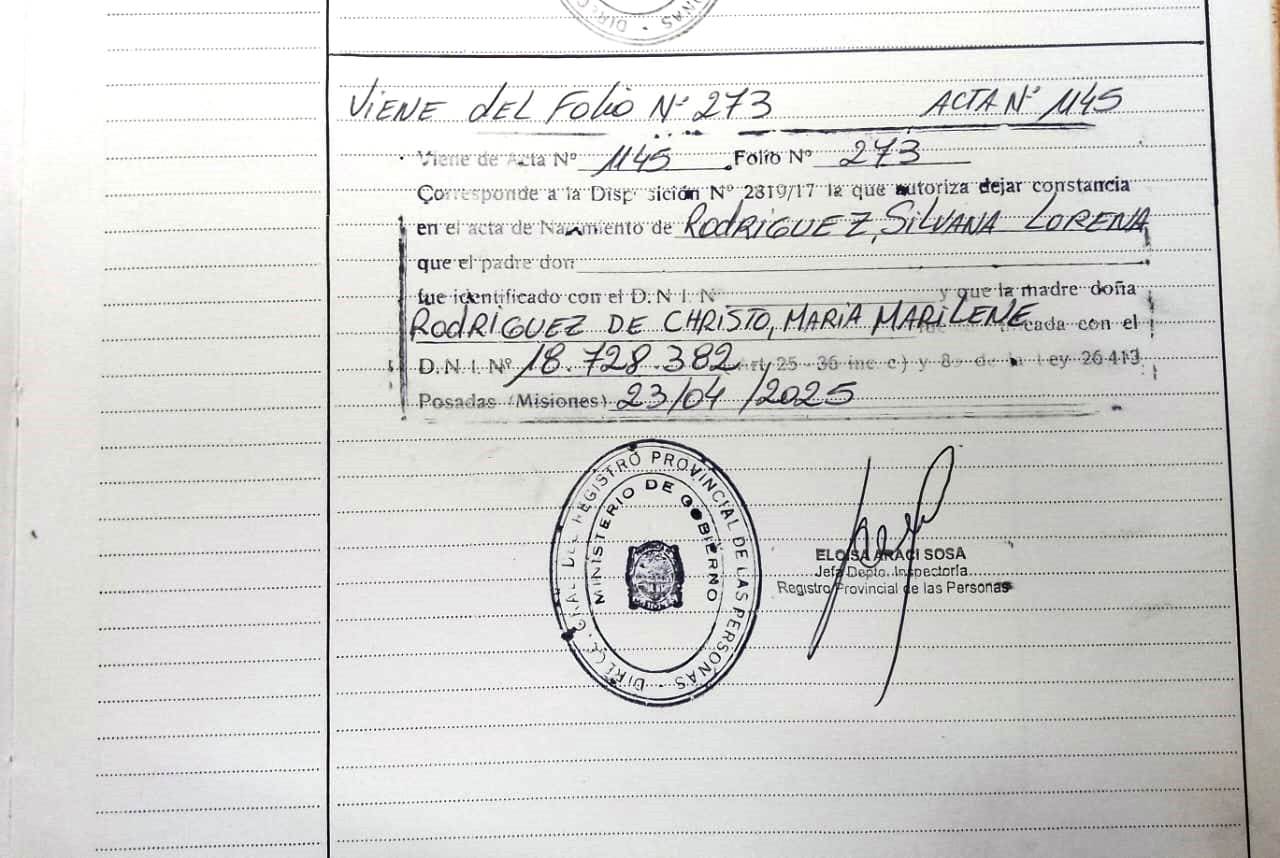 VIENE DEL FOLIO Nº 273 ACTA Nº 1145
Viene de Acta Nº 1145 Folio Nº 273
Corresponde a la Disposición Nº 2819/17 la que autoriza dejar constancia
en el acta de Nacimiento de RODRIGUEZ, SILVANA LORENA
que el padre don
fue identificado con el D. N. I. Nº y que la madre doña
RODRIGUEZ DE CHRISTO, MARIA MARILENE
con el
D. N. I. Nº 18.728.382 Art 25 - 36 inc c) y 8 de la Ley 26413
Posadas (Misiones) 23/04/2025
DIREC. GRAL DEL REGISTRO PROVINCIAL DE LAS PERSONAS
MINISTERIO DE GOBIERNO
ELOISA ARACI SOSA
Jefa Depto. Inspectoría
Registro Provincial de las Personas